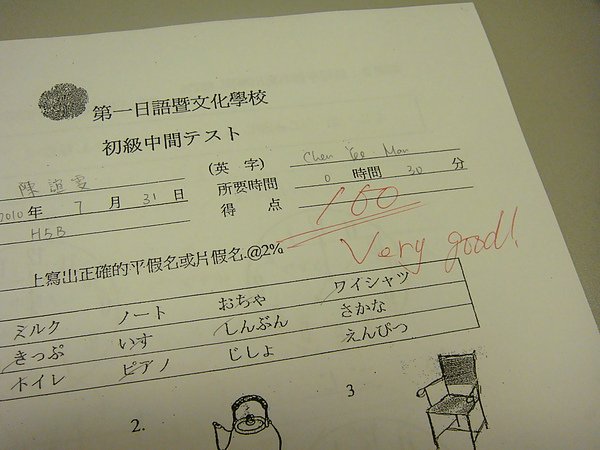 第一日語暨文化學校
初級中間テスト
(英 字) Chen Yee Man
陳誼雯
所要時間 0 時間 30 分
2010 年 7 月 31 日
得 点 100
H5B
Very good!
上寫出正確的平假名或片假名.@2%
ミルク ノート おちゃ ワイシャツ
きっぷ いす しんぶん さかな
トイレ ピアノ じしょ えんぴつ
2. 3